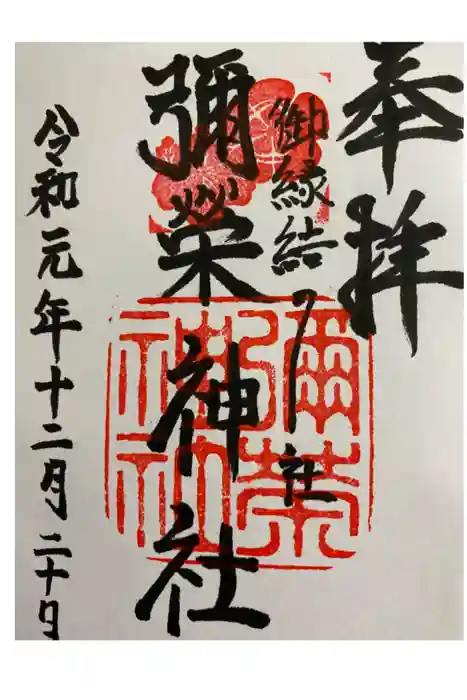 奉拝
御縁結ノ社
彌榮神社
令和元年十二月二十日
彌栄
神社